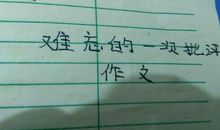 难忘的一次批评
作文